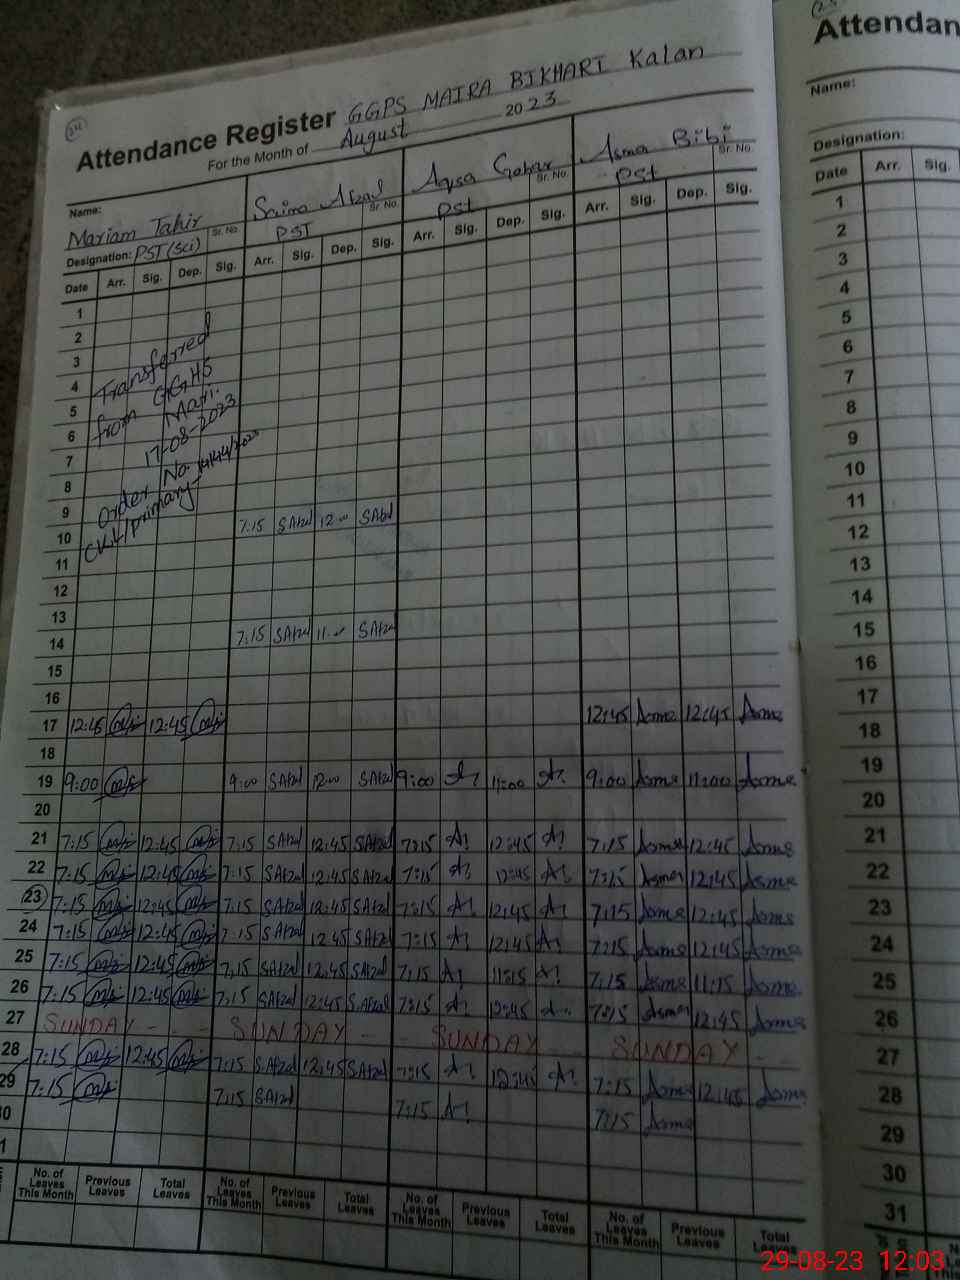 Attendance Register GGPS MAIRA BIKHARI Kalan
For the Month of August 2023
Name: Mariam Tahir Sr. No.
Designation: PST (Sci)
Saima Afzal Sr. No.
PST
Aqsa Gohar Sr. No.
Pst
Asma Bibi Sr. No.
Pst
Date Arr. Sig. Dep. Sig. Arr. Sig. Dep. Sig. Arr. Sig. Dep. Sig. Arr. Sig. Dep. Sig.
1
2
3
4
5
6
7
8
9
Transferred
from GGHS
17-08-2023
Order No.
10 7:15 SAfzal 12:00 SAfzal
11
12
13
14 7:15 SAfzal 11:00 SAfzal
15
16
17 12:45 12:45 12:45 Asma 12:45 Asma
18
19 9:00 9:00 SAfzal 12:00 SAfzal 9:00 11:00 9:00 Asma 11:00 Asma
20
21 7:15 12:45 7:15 SAfzal 12:45 SAfzal 7:15 12:45 7:15 Asma 12:45 Asma
22 7:15 12:45 7:15 SAfzal 12:45 SAfzal 7:15 12:45 7:15 Asma 12:45 Asma
23 7:15 12:45 7:15 SAfzal 12:45 SAfzal 7:15 12:45 7:15 Asma 12:45 Asma
24 7:15 12:45 7:15 SAfzal 12:45 SAfzal 7:15 12:45 7:15 Asma 12:45 Asma
25 7:15 12:45 7:15 SAfzal 12:45 SAfzal 7:15 11:15 7:15 Asma 11:15 Asma
26 7:15 12:45 7:15 SAfzal 12:45 S.Afzal 7:15 12:45 7:15 Asma 12:45 Asma
27 SUNDAY SUNDAY SUNDAY SUNDAY
28 7:15 12:45 7:15 SAfzal 12:45 SAfzal 7:15 12:45 7:15 Asma 12:45 Asma
29 7:15 7:15 SAfzal 7:15 7:15 Asma
No. of Leaves This Month Previous Leaves Total Leaves No. of Leaves This Month Previous Leaves Total Leaves No. of Leaves This Month Previous Leaves Total Leaves No. of Leaves This Month Previous Leaves Total Leaves
Attendan
Name:
Designation:
Date Arr. Sig.
1
2
3
4
5
6
7
8
9
10
11
12
13
14
15
16
17
18
19
20
21
22
23
24
25
26
27
28
29
30
31
29-08-23 12:03